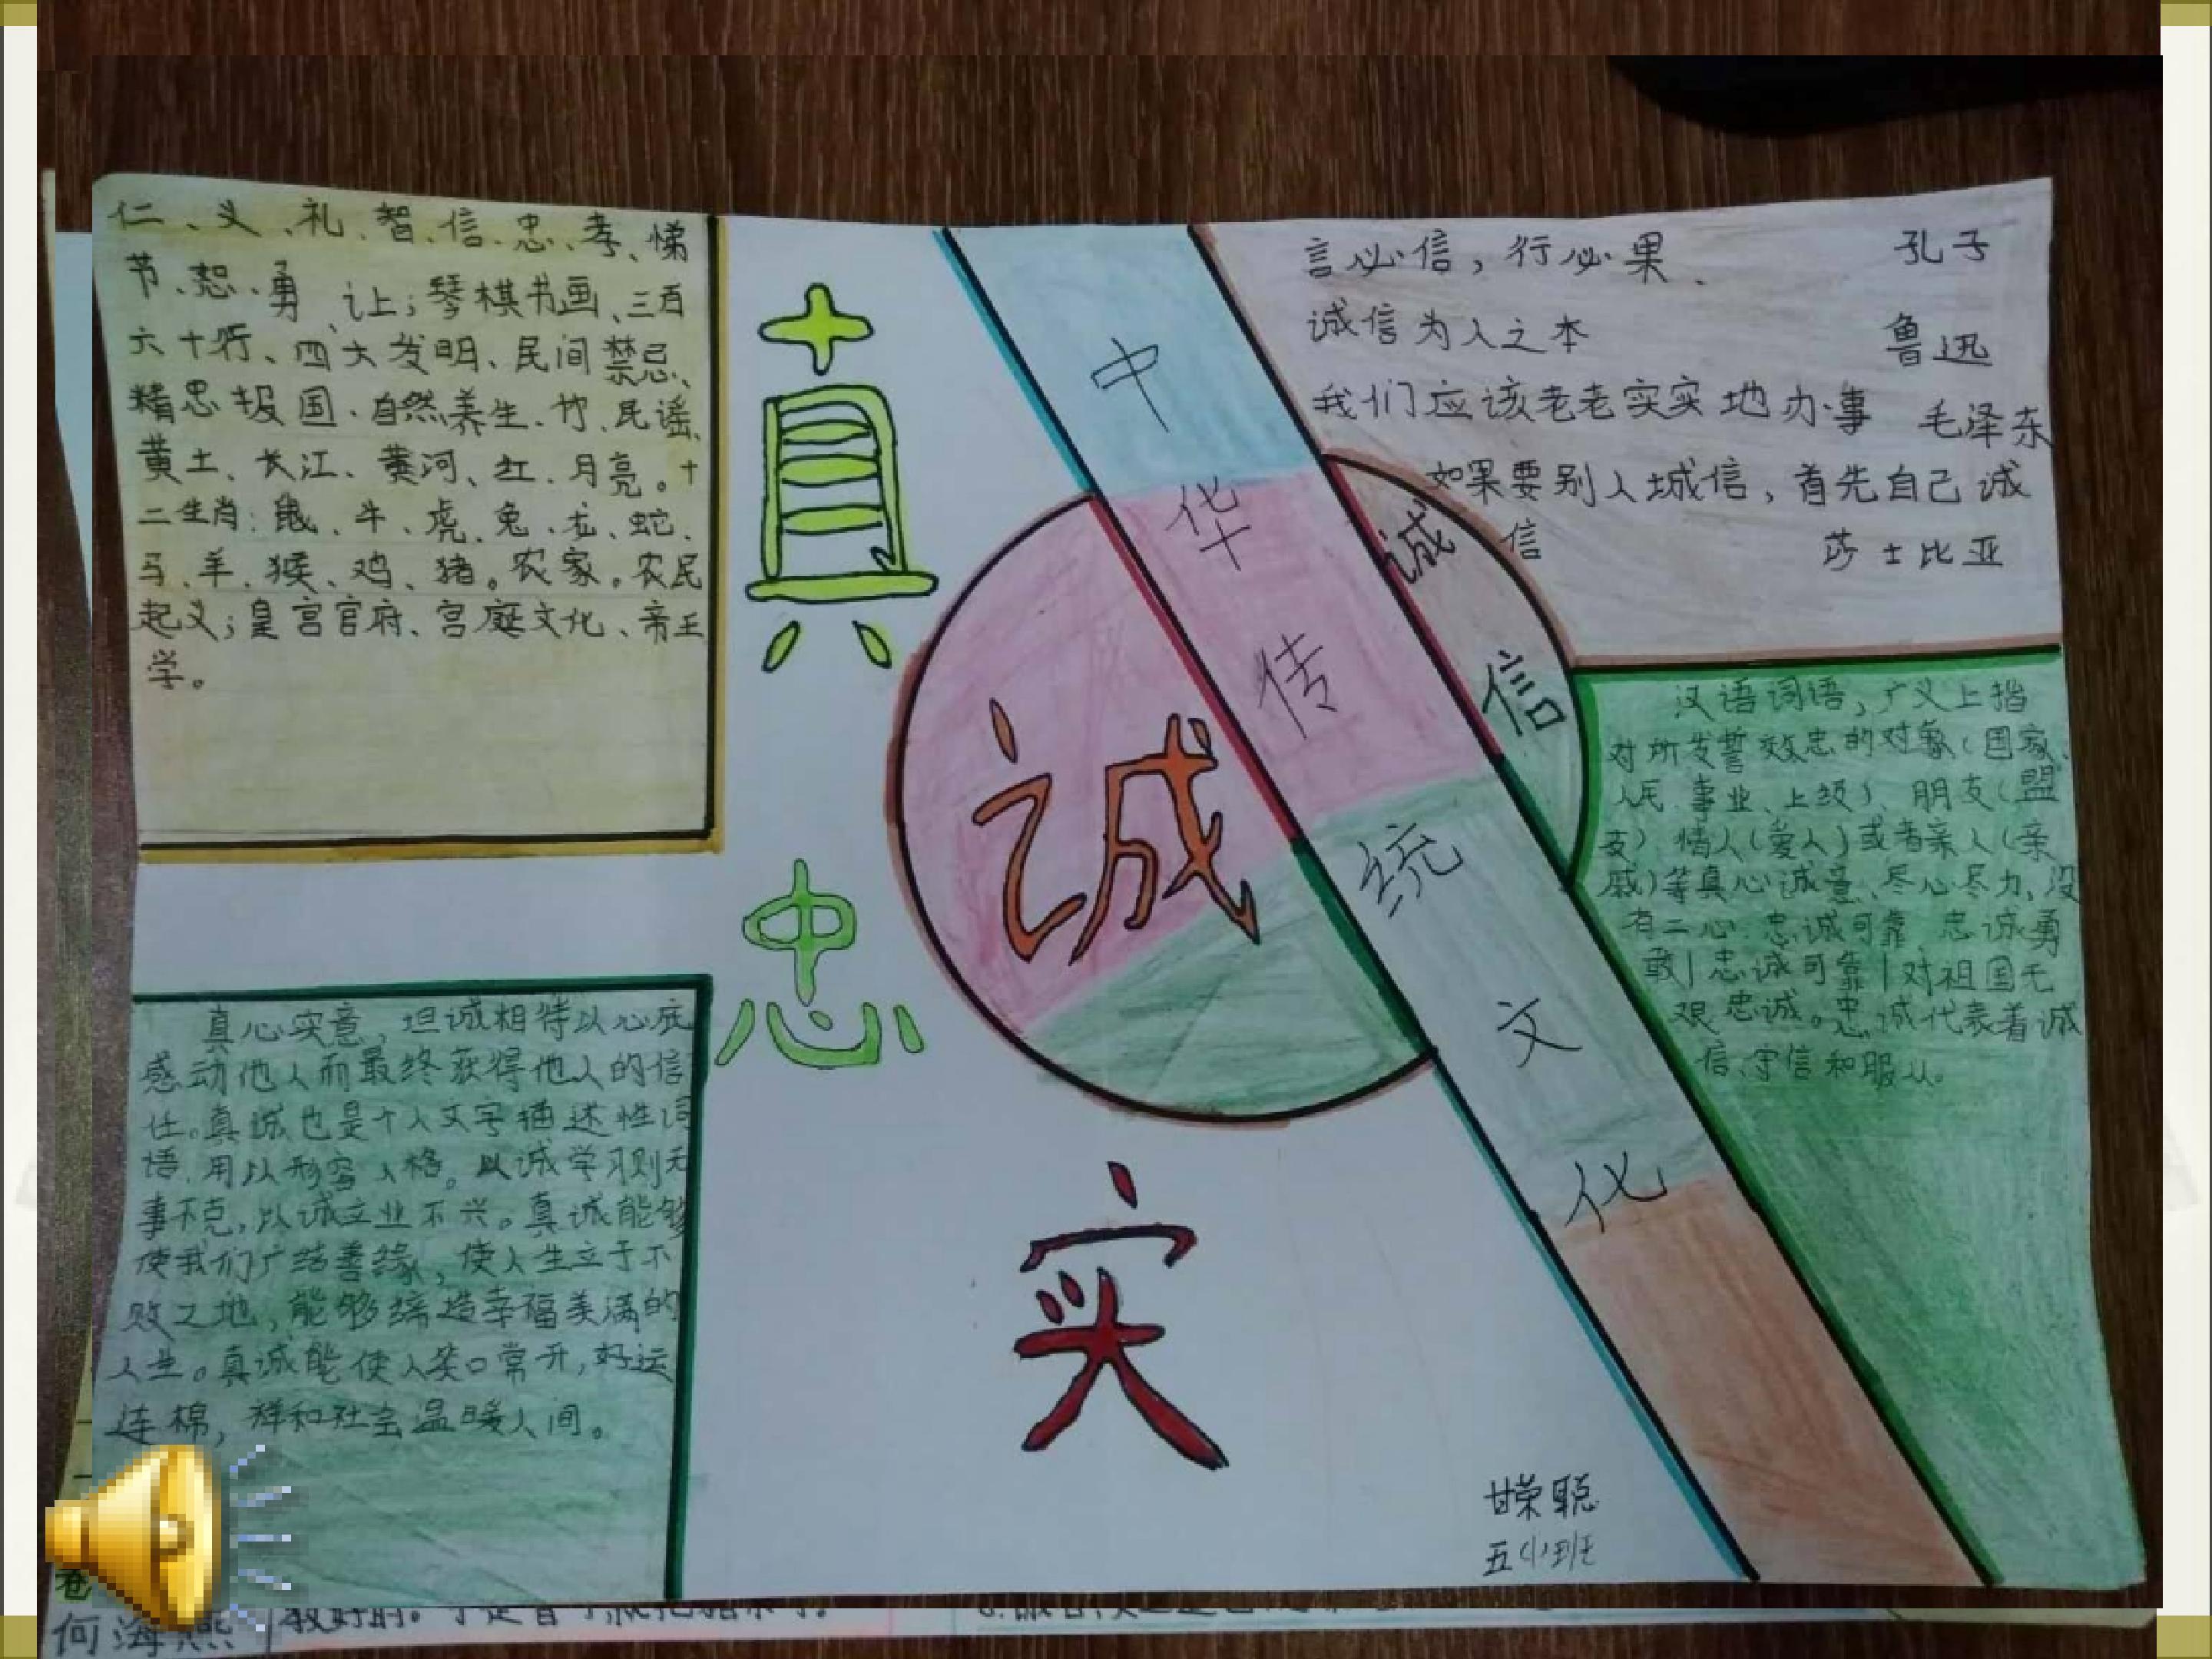 仁、义、礼、智、信、忠、孝、悌
节、恕、勇、让上；琴棋书画、三百
六十行、四大发明、民间禁忌、
精忠报国、自然养生、竹、民谣、
黄土、长江、黄河、红、月亮。十
二生肖：鼠、牛、虎、兔、龙、蛇、
马、羊、猴、鸡、猪。农家。农民
起义；皇宫官府、宫庭文化、帝王
学。
真
忠
诚
实
中
华
传
统
文
化
诚
信
言必信，行必果、 孔子
诚信为人之本 鲁迅
我们应该老老实实地办事 毛泽东
如果要别人城信，首先自己诚
信 莎士比亚
汉语词语，广义上指
对所发誓效忠的对象（国家、
人民、事业、上级）、朋友（盟
友）情人（爱人）或者亲人（亲
戚）等真心诚意、尽心尽力，没
有二心：忠诚可靠 忠诚勇
敢|忠诚可靠|对祖国无
艰忠诚。忠诚代表着诚
信、守信和服从。
真心实意，坦诚相待以心底
感动他人而最终获得他人的信
任。真诚也是个人文字描述性词
语，用以形容人格。以诚学习则无
事不克，以诚立业不兴。真诚能够
使我们广结善缘，使人生立于不
败之地，能够缔造幸福美满的
人生。真诚能使人笑口常开，好运
连棉，祥和社会温暖人间。
甘荣聪
五(小)班
何海燕